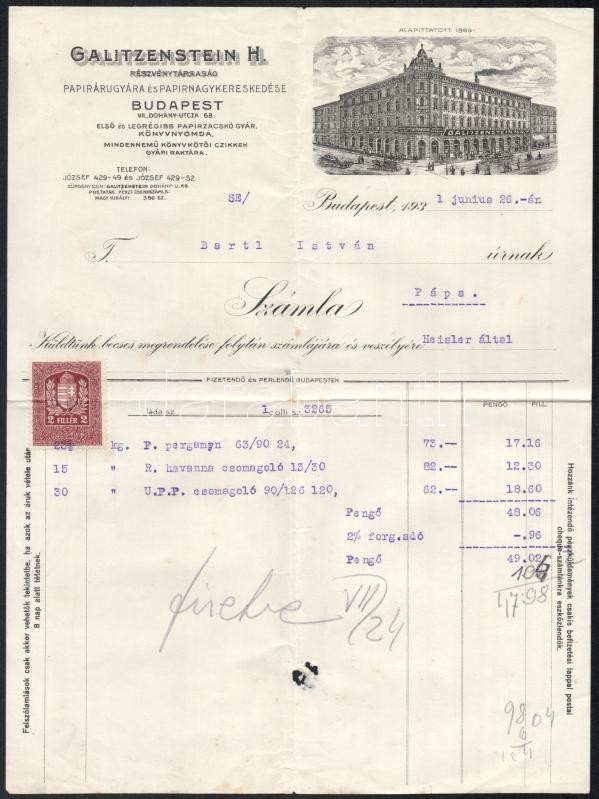 ALAPITTATOTT 1863.
GALITZENSTEIN H.
RÉSZVÉNYTÁRSASÁG
PAPIRÁRUGYÁRA ÉS PAPIRNAGYKERESKEDÉSE
BUDAPEST
VII., DOHÁNY-UTCZA 68.
ELSŐ ÉS LEGRÉGIBB PAPIRZACSKÓ GYÁR.
KÖNYVNYOMDA.
MINDENNEMŰ KÖNYVKÖTŐI CZIKKEK
GYÁRI RAKTÁRA.
TELEFON:
JÓZSEF 429-49 ÉS JÓZSEF 429-52.
SÜRGÖNYCZIM: GALITZENSTEIN DOHÁNY-U. 68.
POSTATAK. PÉNZT. CSEKKSZÁMLA:
MAGY. KIRÁLYI 3196 SZ.
GALITZENSTEIN H.
SE/
Budapest, 193 1 junius 26.-án
T. Bartl István úrnak
Számla Pápa.
Küldtünk becses megrendelése folytán számlájára és veszélyére Heisler által
FIZETENDŐ ÉS PERLENDŐ BUDAPESTEN
láda sz. 1 colli sz. 3265
PENGŐ FILL.
2 FILLÉR 2
kg. P. pergamyn 63/90 24, 73.-- 17.16
15 " R. havanna csomagoló 13/30 82.-- 12.30
30 " U.P.P. csomagoló 90/126 120, 62.-- 18.60
Pengő 48.06
2% forg.adó -.96
Pengő 49.02
47.98
VII/24
98.04
Felszólamlások csak akkor vehetők tekintetbe, ha azok az áruk vétele után
8 nap alatt tétetnek.
Hozzánk intézendő pénzküldemények csakis befizetési lappal postai
cheque-számlánkra eszközlendők.
darabanth